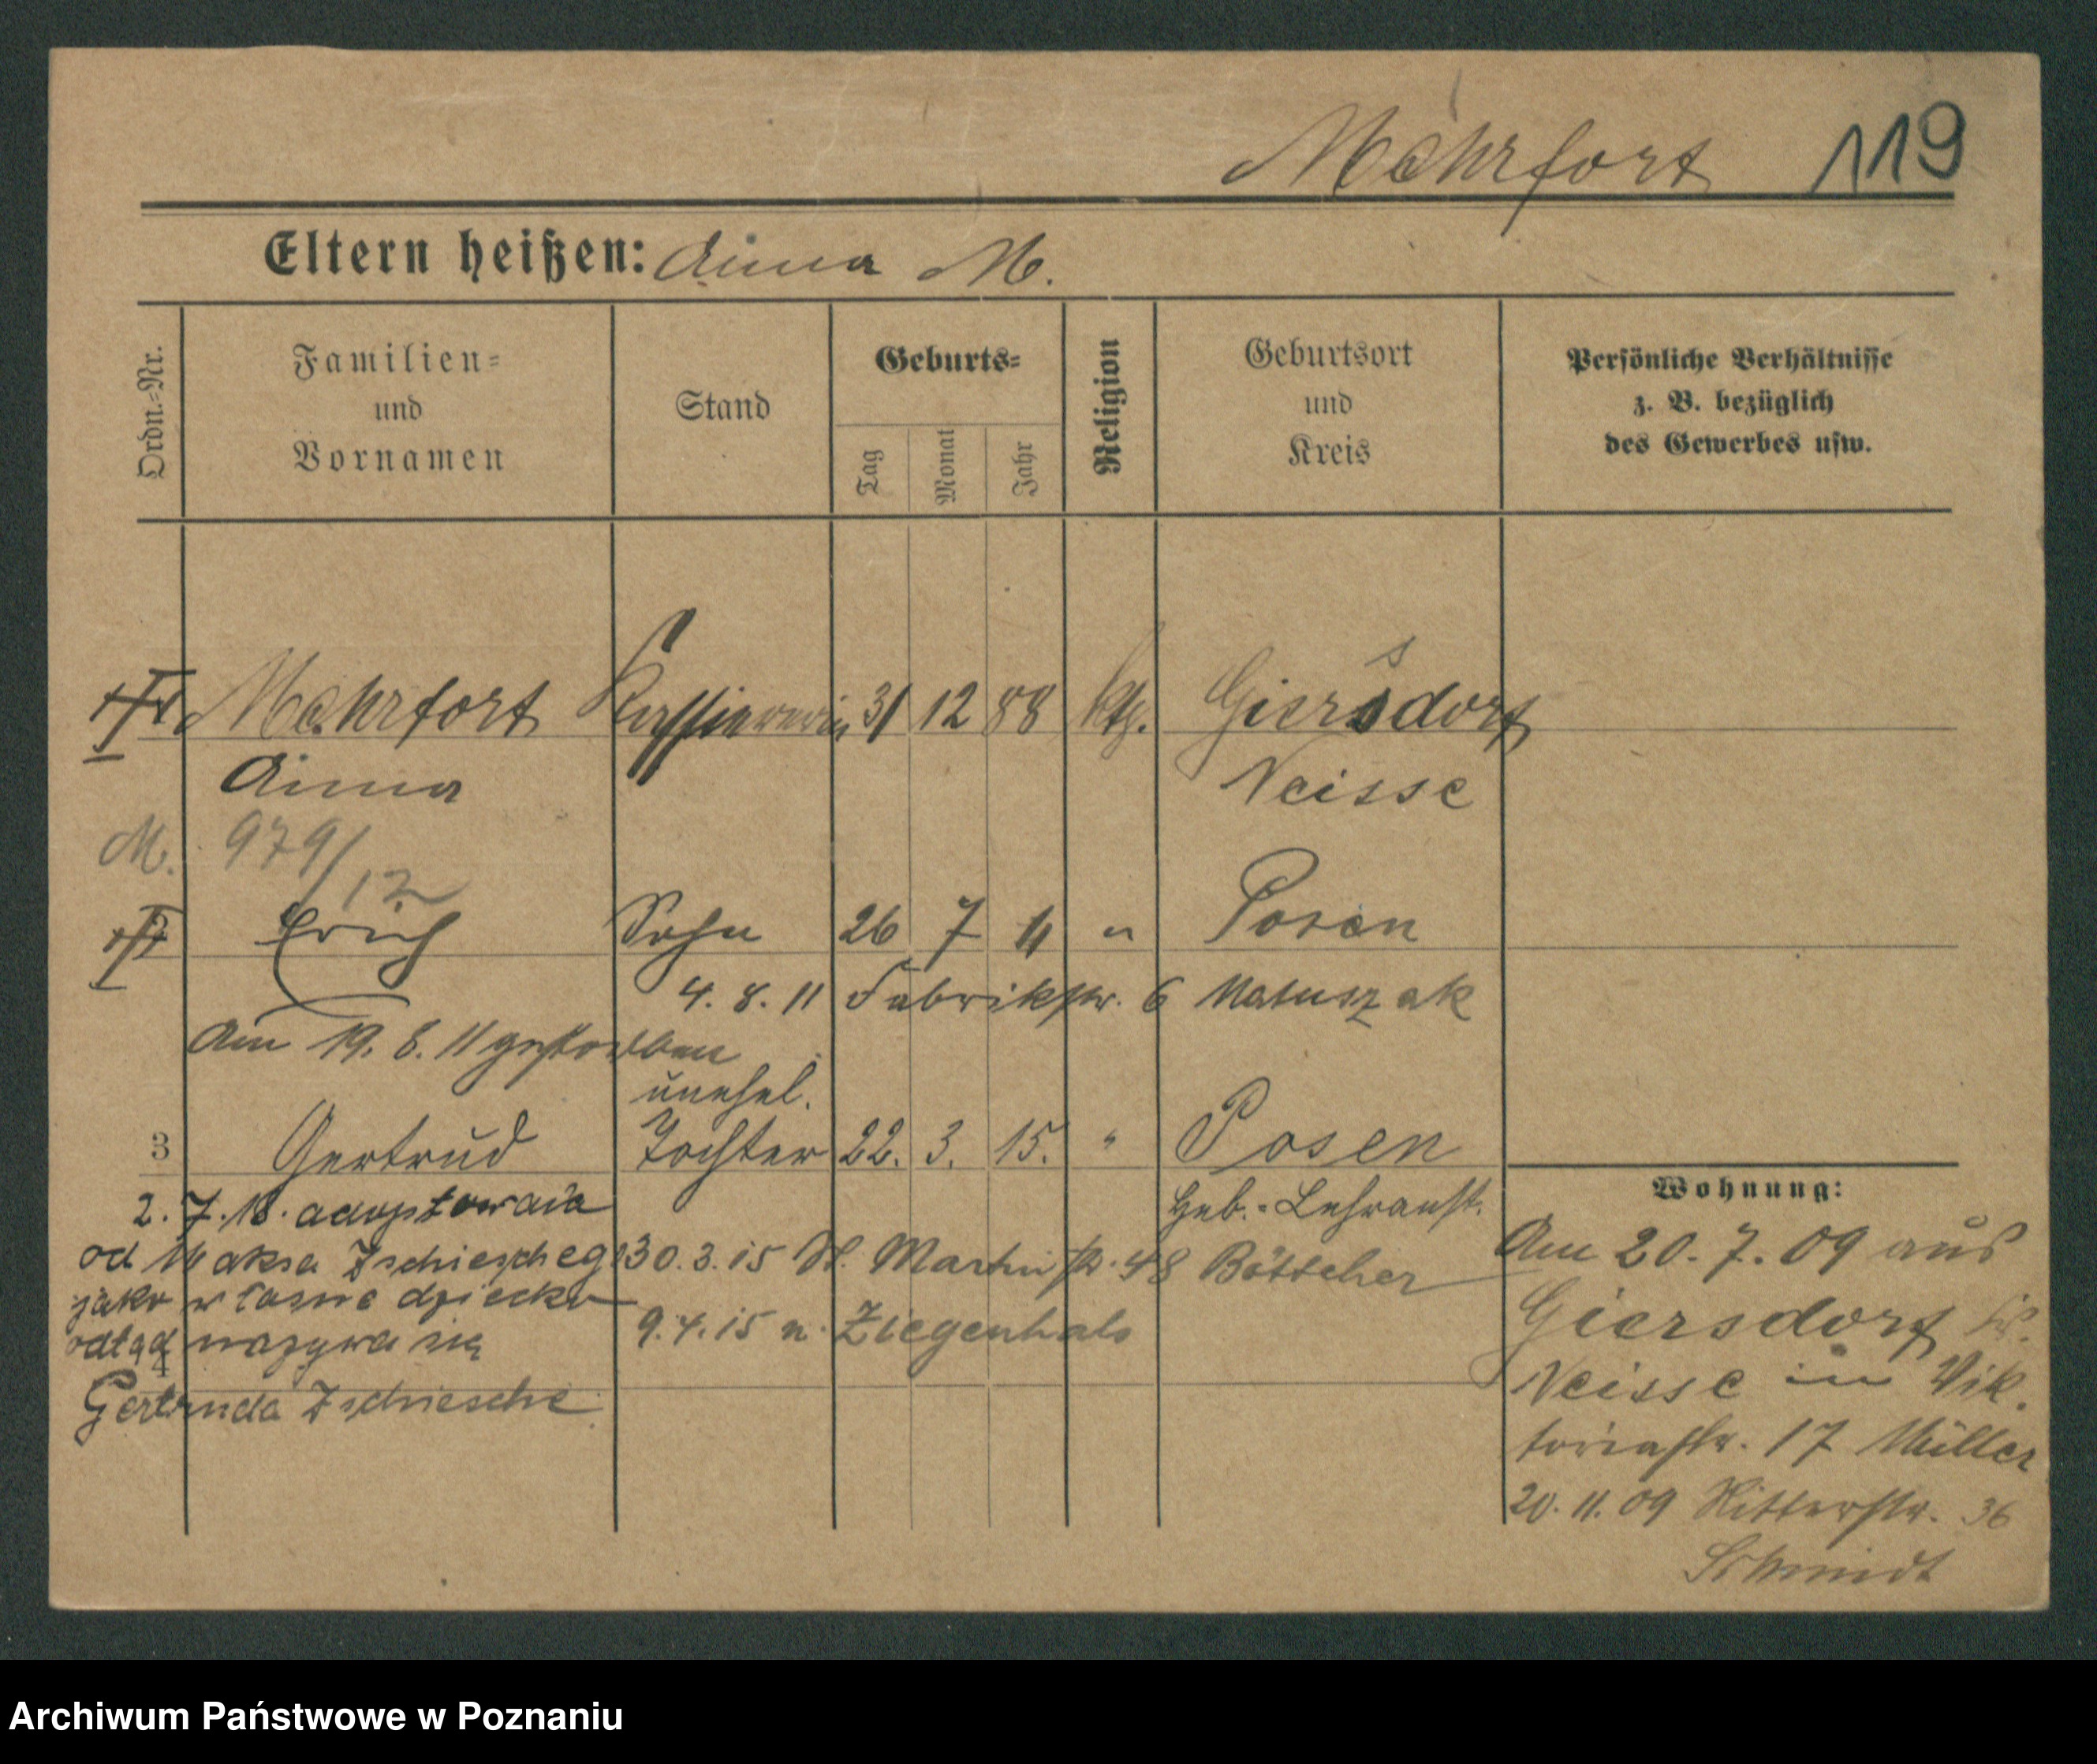 Mehrfort 119
Eltern heißen: Anna M.
Ordn.-Nr.
Familien-
und
Vornamen
Stand
Geburts-
Tag
Monat
Jahr
Religion
Geburtsort
und
Kreis
Persönliche Verhältnisse
z. B. bezüglich
des Gewerbes usw.
Mehrfort Kassiererin 31 12 88 kth. Giersdorf
Anna Neisse
M. 979/12
Erich Sohn 26 7 11 " Posen
4. 8. 11 Fabrikstr. 6 Matuszak
Am 19. 8. 11 gestorben
unehel.
3 Gertrud Tochter 22. 3. 15. " Posen
Heb.-Lehranst.
2. 7. 18. adoptowana
od Maksa Tschieschego
jako własne dziecko
odtąd nazywa się
4
Gertruda Tschiesche
30. 3. 15 St. Martinstr. 48 Böttcher
9. 4. 15 n. Ziegenhals
Wohnung:
Am 20. 7. 09 aus
Giersdorf
Neisse in Vik.
toriastr. 17 Müller
20. 11. 09 Ritterstr. 36
Schmidt
Archiwum Państwowe w Poznaniu